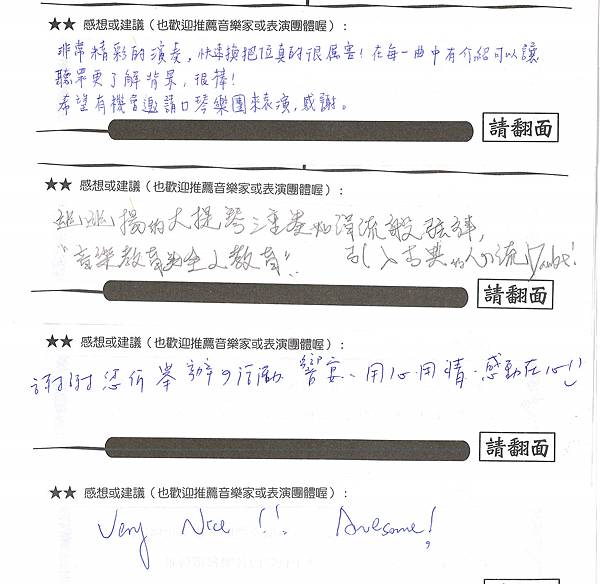 ★★ 感想或建議（也歡迎推薦音樂家或表演團體喔）：
非常精彩的演奏，快速換把位真的很厲害！在每一曲中有介紹可以讓
聽眾更了解背景，很棒！
希望有機會邀請口琴樂團來表演，感謝。
請翻面
★★ 感想或建議（也歡迎推薦音樂家或表演團體喔）：
揚的大提琴三重奏如
"音樂教育為全人教育" 引入古典的
請翻面
★★ 感想或建議（也歡迎推薦音樂家或表演團體喔）：
謝謝您們舉辦的活動 響宴、用心用情．感動在心!!
請翻面
★★ 感想或建議（也歡迎推薦音樂家或表演團體喔）：
Very Nice !!. Awesome!